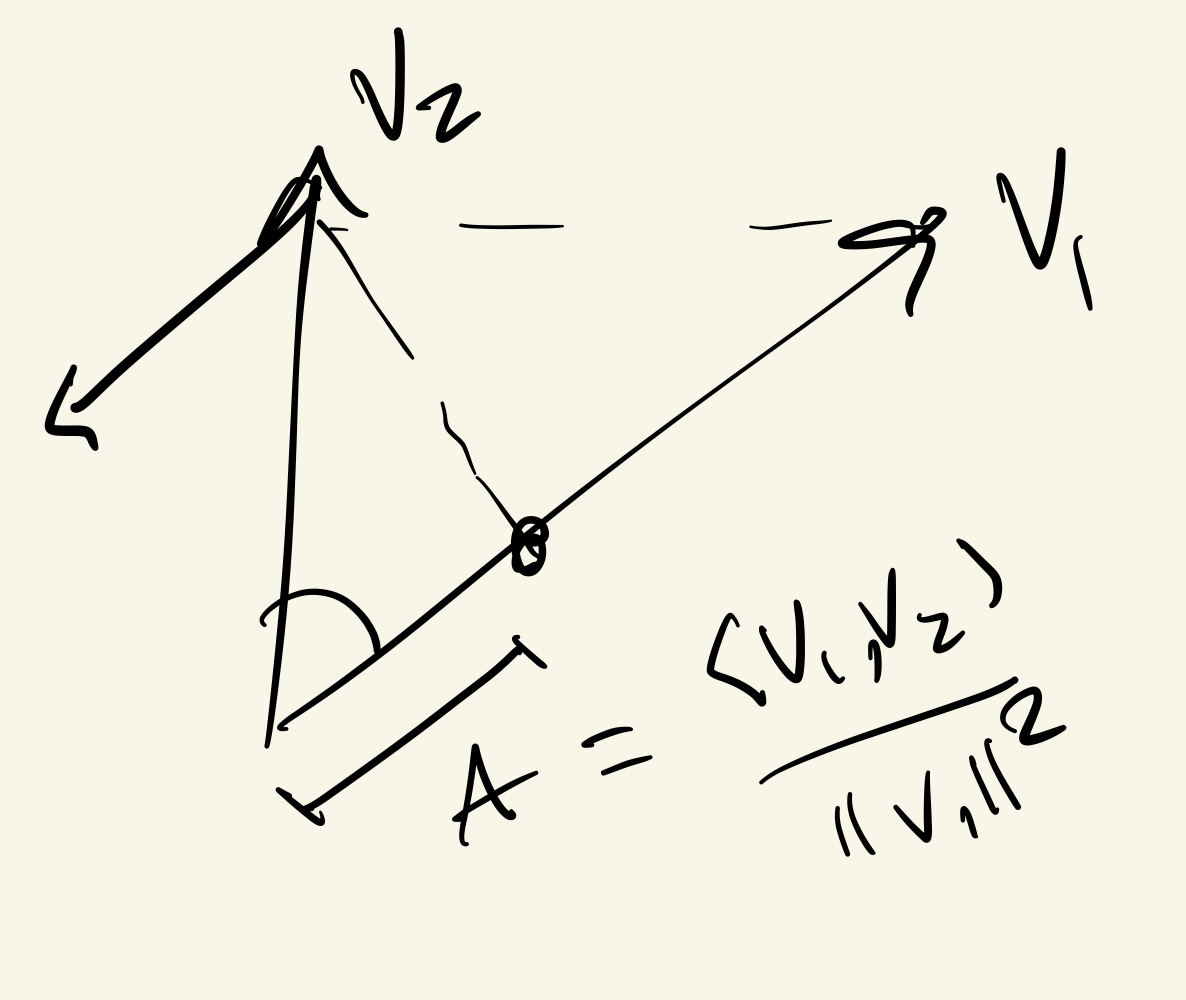 V2
V1
A = <V1,V2> / ||V1||2